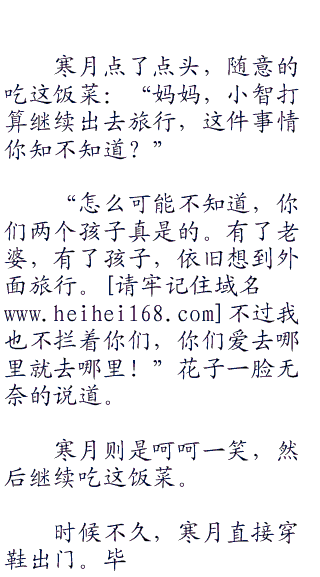 寒月点了点头，随意的
吃这饭菜：“妈妈，小智打
算继续出去旅行，这件事情
你知不知道？”
“怎么可能不知道，你
们两个孩子真是的。有了老
婆，有了孩子，依旧想到外
面旅行。[请牢记住域名
www.heihei168.com]不过我
也不拦着你们，你们爱去哪
里就去哪里！”花子一脸无
奈的说道。
寒月则是呵呵一笑，然
后继续吃这饭菜。
时候不久，寒月直接穿
鞋出门。毕